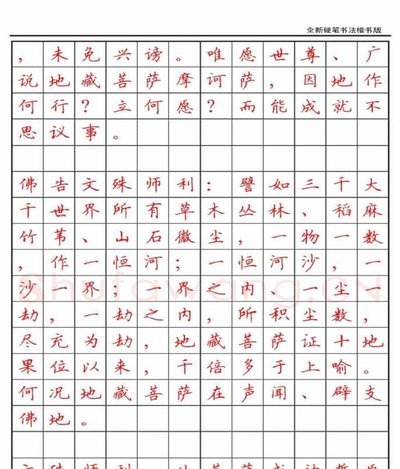 全新硬笔书法楷书版
，未免兴谤。唯愿世尊、广
说地藏菩萨摩诃萨，因地作
何行？立何愿？而能成就不
思议事。
佛告文殊师利：譬如三千大
千世界所有草木丛林、稻麻
竹苇、山石微尘，一物一数
，作一恒河；一恒河沙，一
沙一界；一界之内、一尘一
劫，一劫之内，所积尘数，
尽充为劫，地藏菩萨证十地
果位以来，千倍多于上喻。
何况地藏菩萨在声闻、辟支
佛地。